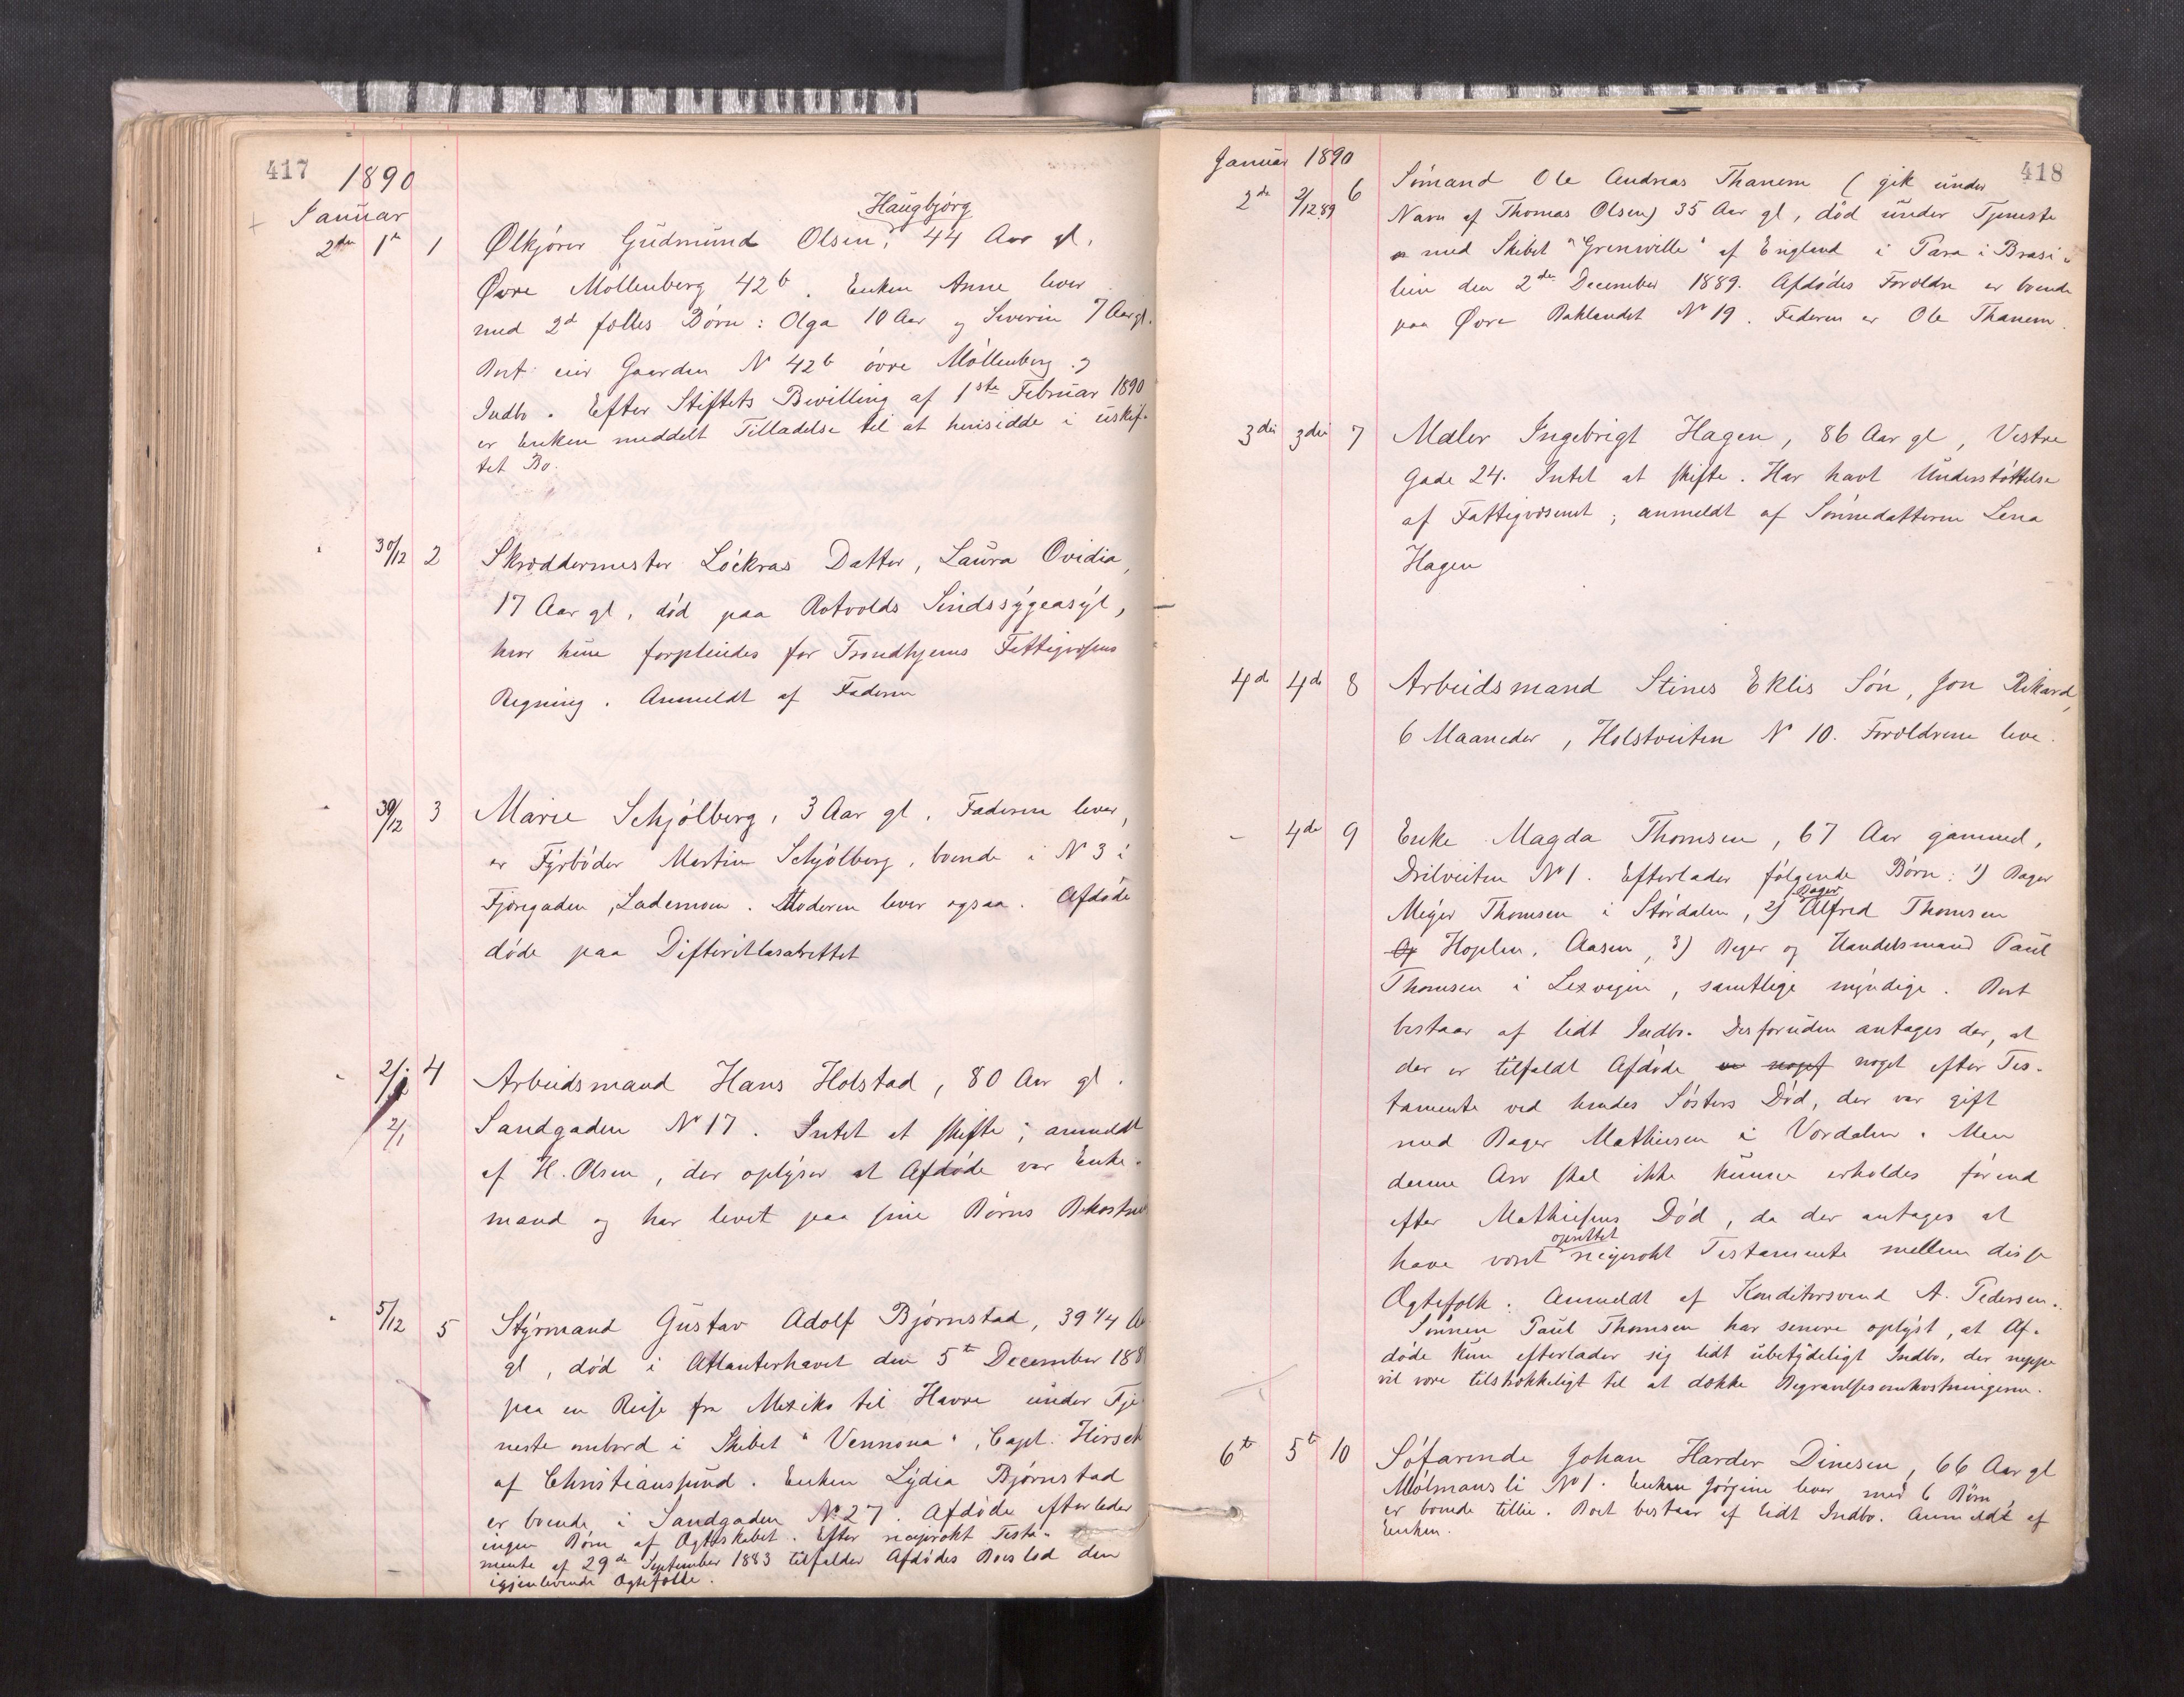 417
1890
Januar
2den 1te 1 Ølkjører Gudmund Olsen, Haugbjørg 44 Aar gl.
Øvre Møllenberg 42b. Enken Anne lever
med 2d fælles Børn: Olga 10 Aar og Severin 7 Aar gl.
Boet eier Gaarden N 42b øvre Møllenberg og
Indbo. Efter Stiftets Bevilling af 1ste Februar 1890
er Enken meddelt Tilladelse til at hensidde i uskif-
tet Bo.
" 30/12 2 Skræddermester Löckras Datter, Laura Ovidia,
17 Aar gl, död paa Rotvolds Sindssygeasyl,
hvor hun forpleiedes for Trondhjems Fattigvæsens
Regning. Anmeldt af Faderen
" 30/12 3 Marie Schjölberg, 3 Aar gl. Faderen lever,
er Fyrböder Martin Schjölberg, boende i N 3 i
Fjæregaden, Lademoen. Moderen lever ogsaa. Afdöde
döde paa Difteritlasarettet
" 2/1 4 Arbeidsmand Hans Holstad, 80 Aar gl.
2/1 Sandgaden No 17. Intet at skifte; anmeldt
af H. Olsen, der oplyser at Afdöde var Enke-
mand og har levet paa sine Börns Bekostni
" 5/12 5 Styrmand Gustav Adolf Bjørnstad, 39 1/4 Aa
gl, död i Atlanterhavet den 5te December 188
paa en Reise fra Mexiko til Havre under Tje-
neste ombord i Skibet "Vennona", Capt. Hirsch
af Christianssund. Enken Lydia Bjørnstad
er boende i Sandgaden No 27. Afdöde efterlader
ingen Börn af Ægteskabet. Efter reciprokt Testa-
mente af 29de September 1883 tilfalder Afdödes Boeslod den
igjenlevende Ægtefælle.
418
Januar 1890
2de 2/12 89 6 Sömand Ole Andreas Thanem (gik under
Navn af Thomas Olsen) 35 Aar gl, död under Tjeneste
med Skibet "Grenville" af England i Para i Brasi-
lien den 2den December 1889. Afdödes Forældre er boende
paa Øvre Baklandet No 19. Faderen er Ole Thanem.
3die 3die 7 Maler Ingebrigt Hagen, 86 Aar gl, Vestre
Gade 24. Intet at skifte. Har havt Understöttelse
af Fattigvæsenet; anmeldt af Sönnedatteren Lena
Hagen
4de 4de 8 Arbeidsmand Stines Eklis Sön, Jon Rikard,
6 Maaneder, Holstveiten No 10. Forældrene leve.
" 4de 9 Enke Magda Thomsen, 67 Aar gammel,
Drilveiten No 1. Efterlader fölgende Börn: 1) Bager
Meyer Thomsen i Stördalen, 2) Bager Alfred Thomsen
Hoplen, Aasen, 3) Bager og Handelsmand Paul
Thomsen i Lexvigen, samtlige myndige. Boet
bestaar af lidt Indbo. Desforuden antages der, at
der er tilfaldt Afdöde en noget noget efter Tes-
tamente ved hendes Sösters Död, der var gift
med Bager Mathiesen i Værdalen. Men
denne Arv skal ikke kunne erholdes förend
efter Mathiesens Död, da der antages at
have været oprettet reciprokt Testamente mellem disse
Ægtefolk. Anmeldt af Konditorsvend A. Pedersen.
Sönnen Paul Thomsen har senere oplyst, at Af-
döde kun efterlader sig lidt ubetydeligt Indbo, der neppe
vil være tilstrækkeligt til at dække Begravelsesomkostningerne.
6te 5te 10 Söfarende Johan Harder Dinesen, 66 Aar gl
Mölmansli No 1. Enken Jörgine lever med 6 Börn
er boende tillie. Boet bestaar af lidt Indbo. Anmeldt af
Enken.